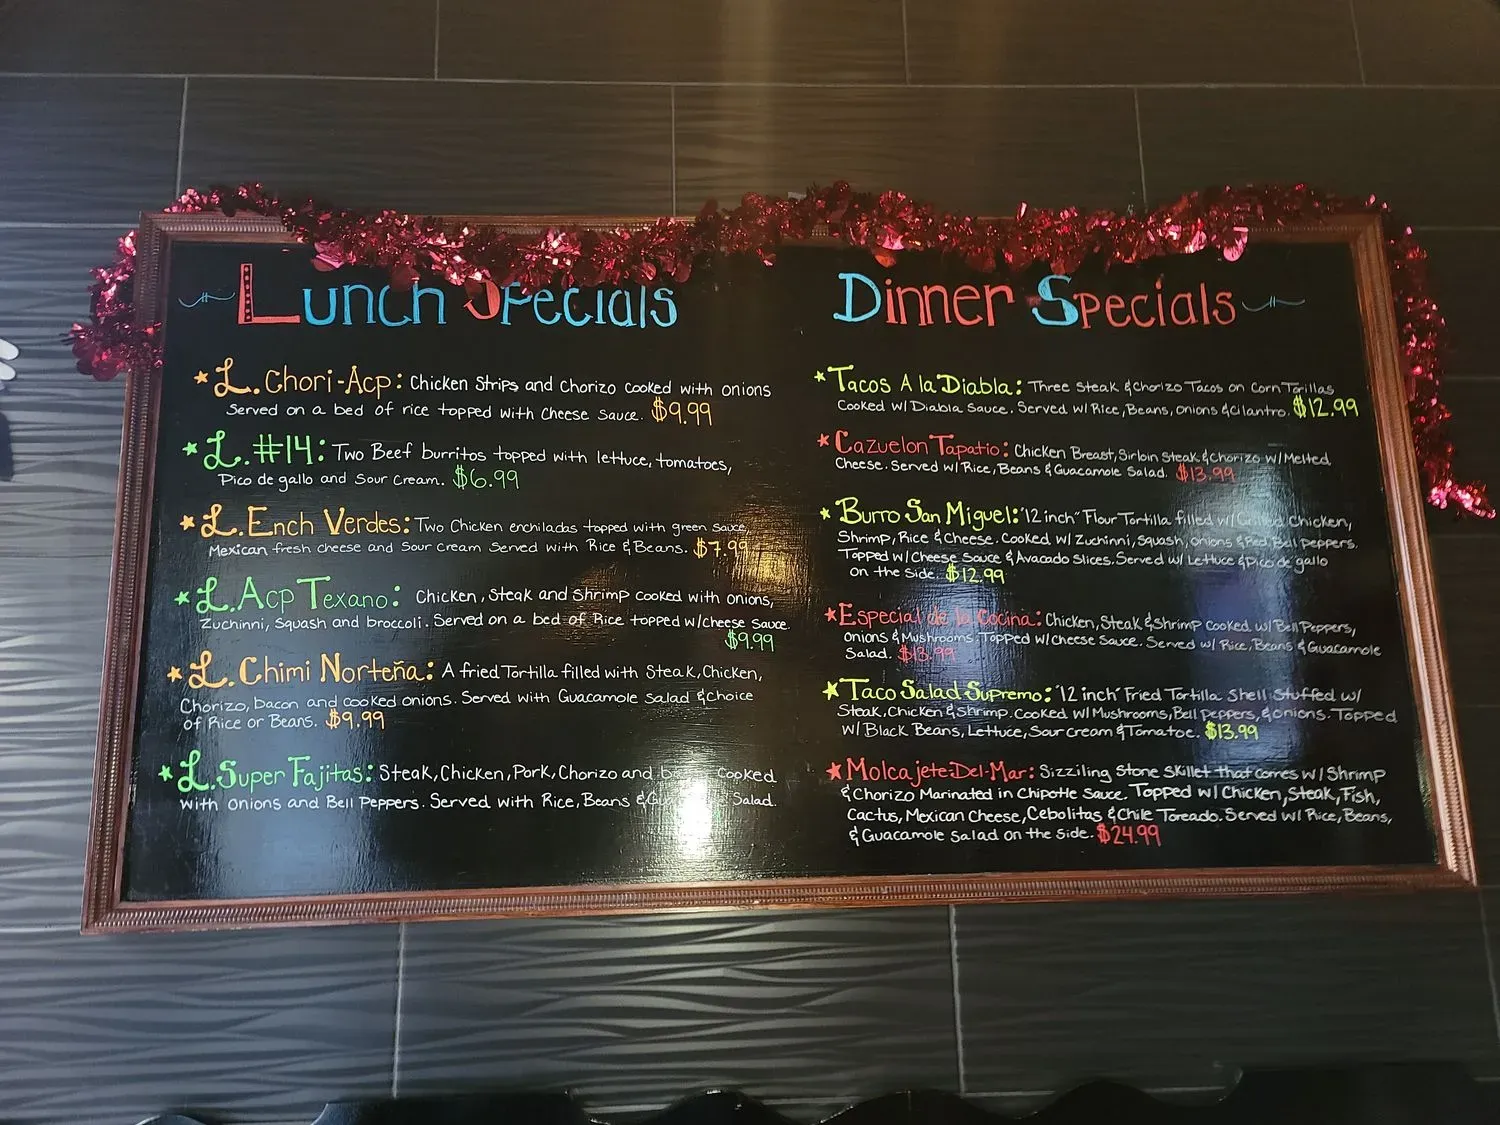 Lunch Specials
L. Chori-Acp: Chicken Strips and Chorizo cooked with onions
Served on a bed of rice topped with Cheese Sauce. $9.99
L. #14: Two Beef burritos topped with lettuce, tomatoes,
Pico de gallo and Sour Cream. $6.99
L. Ench Verdes: Two Chicken enchiladas topped with green sauce,
Mexican fresh cheese and Sour Cream Served with Rice & Beans. $7.99
L. Acp Texano: Chicken, Steak and Shrimp cooked with onions,
Zuchinni, Squash and broccoli. Served on a bed of Rice topped w/cheese Sauce.
$9.99
L. Chimi Norteña: A fried Tortilla filled with Steak, Chicken,
Chorizo, bacon and cooked onions. Served with Guacamole Salad & Choice
of Rice or Beans. $9.99
L. Super Fajitas: Steak, Chicken, Pork, Chorizo and cooked
with onions and Bell Peppers. Served with Rice, Beans & Salad.
Dinner Specials
Tacos A la Diabla: Three Steak & Chorizo Tacos on Corn Torillas
Cooked w/ Diabla Sauce. Served w/ Rice, Beans, Onions & Cilantro. $12.99
Cazuelon Tapatio: Chicken Breast, Sirloin Steak & Chorizo w/ Melted
Cheese. Served w/ Rice, Beans & Guacamole Salad. $13.99
Burro San Miguel: "12 inch" Flour Tortilla filled w/ Grilled Chicken,
Shrimp, Rice & Cheese. Cooked w/ Zuchinni, Squash, Onions & Red Bell Peppers.
Topped w/ Cheese Sauce & Avacado Slices. Served w/ Lettuce & Pico de gallo
on the side. $12.99
Especial de la Cocina: Chicken, Steak & Shrimp cooked w/ Bell Peppers,
Onions & Mushrooms. Topped w/ cheese Sauce. Served w/ Rice, Beans & Guacamole
Salad. $13.99
Taco Salad Supremo: "12 inch" Fried Tortilla Shell Stuffed w/
Steak, Chicken & Shrimp. Cooked w/ Mushrooms, Bell Peppers, & onions. Topped
w/ Black Beans, Lettuce, Sour cream & Tomatoe. $13.99
Molcajete-Del-Mar: Sizziling Stone Skillet that comes w/ Shrimp
& Chorizo Marinated in Chipotle Sauce. Topped w/ Chicken, Steak, Fish,
Cactus, Mexican Cheese, Cebolitas & Chile Toreado. Served w/ Rice, Beans,
& Guacamole Salad on the side. $24.99